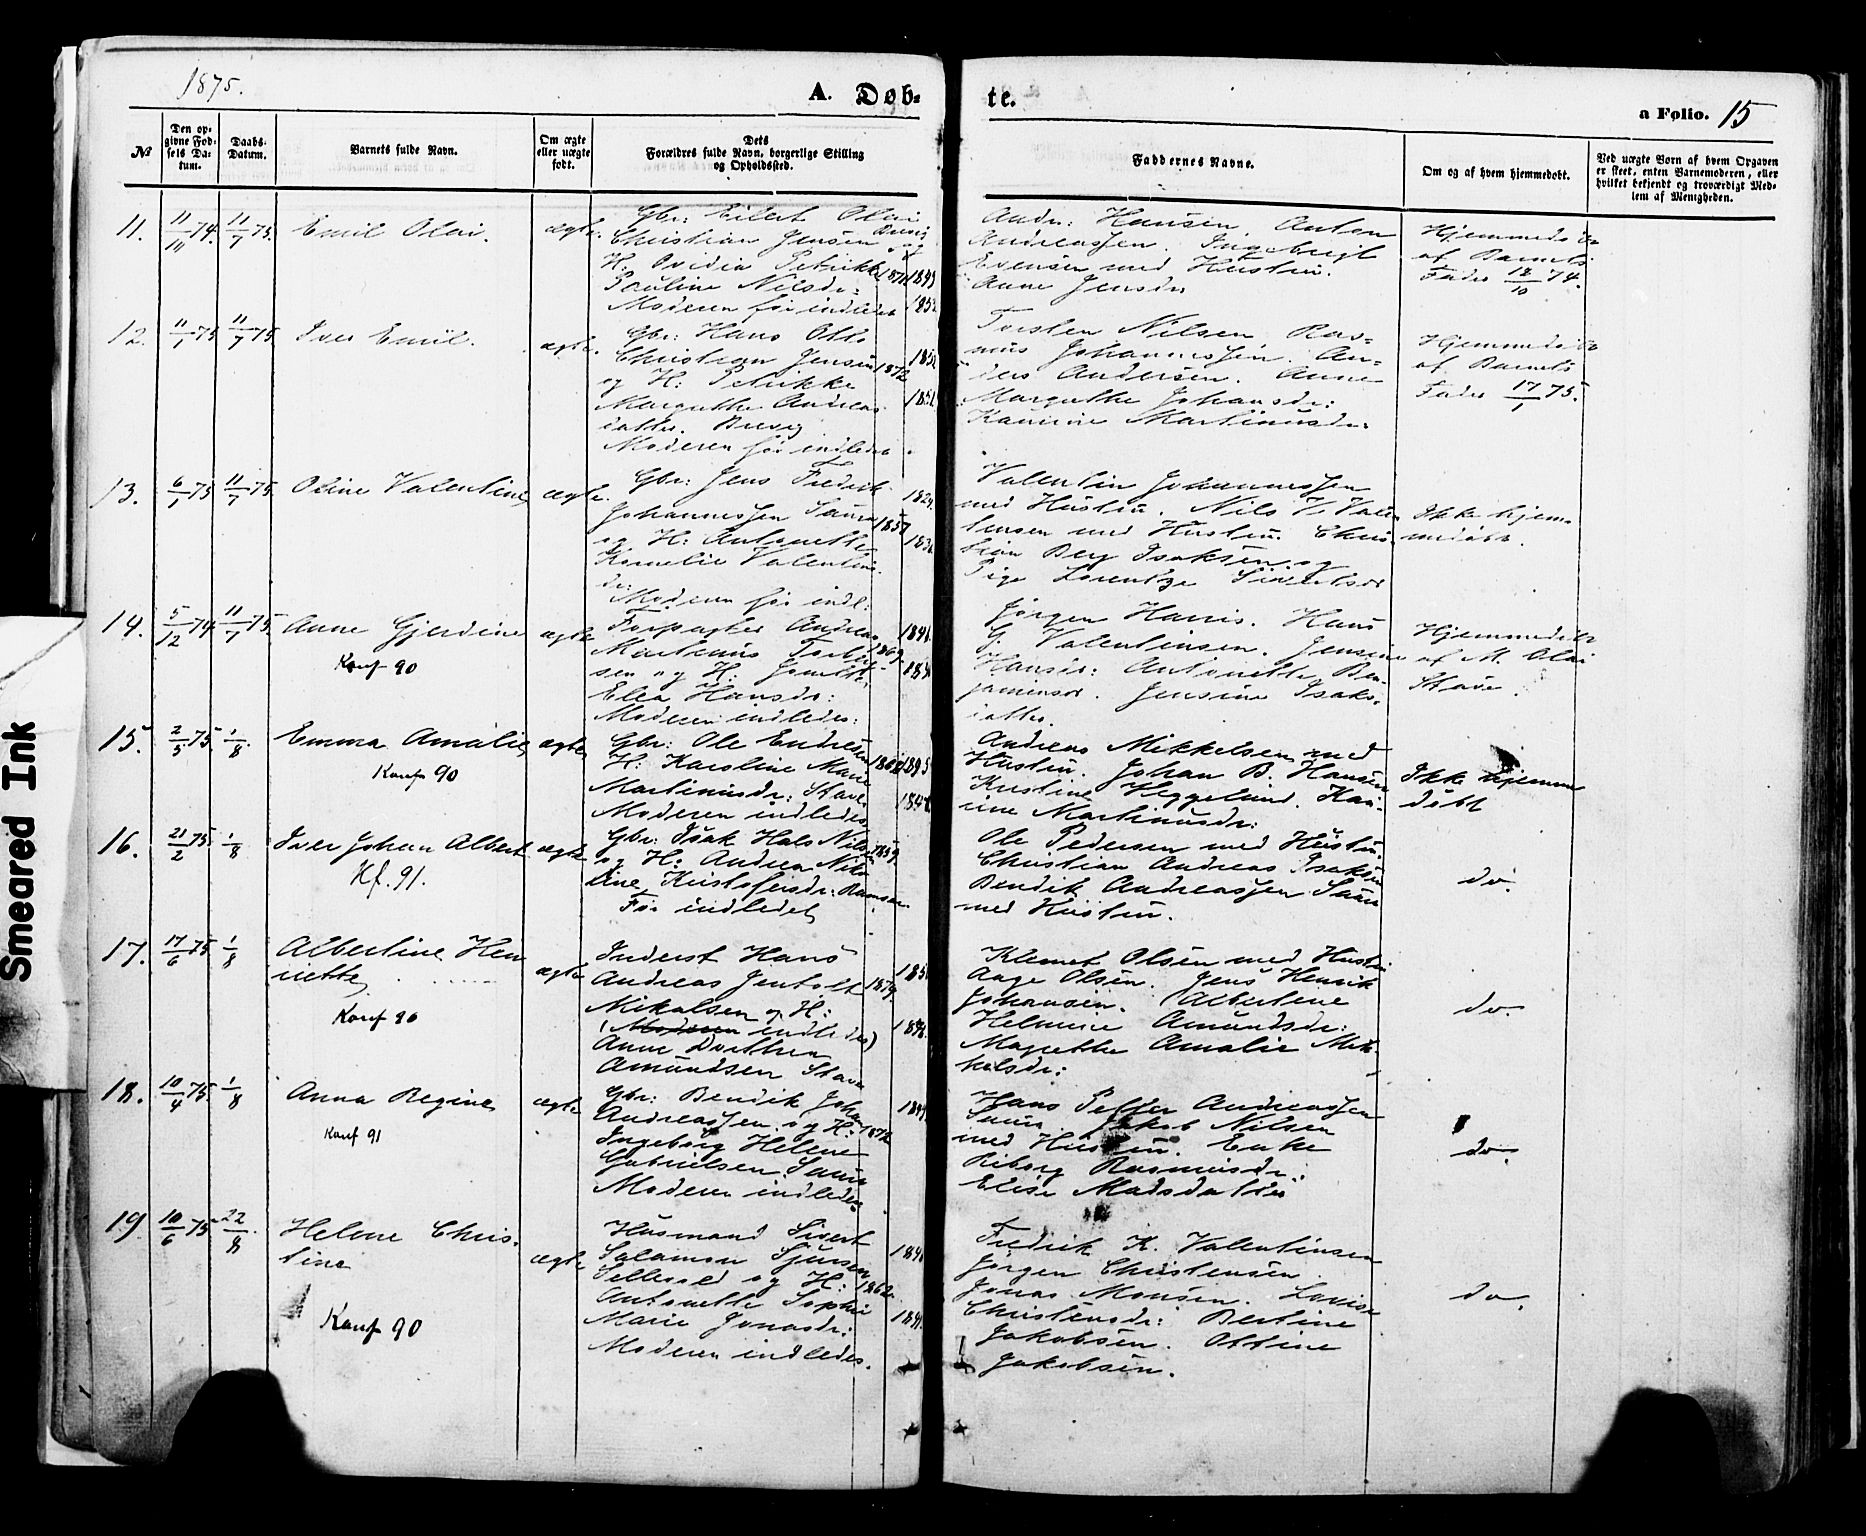 1875.
A. Døb-
te.
a Folio. 15
№
Den op-
givne Fød-
sels Da-
tum.
Daabs-
Datum.
Barnets fulde Navn.
Om ægte
eller uægte
født.
Dets
Forældres fulde Navn, borgerlige Stilling
og Opholdssted.
Faddernes Navne.
Om og af hvem hjemmedøbt.
Ved uægte Børn af hvem Opgaven
er skeet, enten Barnemoderen, eller
hvilket bekjendt og troværdigt Med-
lem af Menigheden.
11. 11/7 75. Emil Olai. ægte.
Gbr: Eilert Olai
Christian Jensen og
H: Ovidia Petrikke
Pauline Nilsdr:
Moderen før indledet
Andr: Hansen. Anton
Andreassen. Ingebrigt
Evensen med Hustru.
Anne Jensdr
Hjemmedøbt
af Barnets
Fader 74.
12. 11/1 75 11/7 75 Iver Emil. ægte.
Gbr: Hans Otto
Christian Jensen 1872
og H: Petrikke
Margrethe Andreas
datter. Brevig
Moderen før indledet
Torsten Nilsen. Ras-
mus Johannessen. An-
ders Andersen. Anne
Margrethe Johansdr:
Kanrine Martinusdr.
Hjemmedøbt
af Barnets
Fader 17/1 75.
13. 6/1 75 11/7 75. Oline Valentine ægte.
Gbr: Jens Fredrik
Johannessen Saura
og H: Antonette
Kornelie Valentins-
dr:
Moderen før indl:
Valentin Johannessen
med Hustru. Nils V. Valen
tinsen med Hustru. Chris-
tian Berg Isaksen og
Pige Lorentze Sivertsdr
Ikke hjem-
medøbt.
14. 5/12 74 11/7 75. Anne Gjerdine ægte
Konf 90
Forpagter Andreas
Martinus
sen og H:
Elea Hansdr:
Moderen indledes:
Jørgen Hanss. Hans
G. Valentinsen. Jensine
Hansdr: Antonette Ben-
jaminsdr. Jensine Isaks-
datter.
Hjemmedøbt
af M. Olai
Stave.
15. 2/5 75 1/8. Emma Amalie ægte
Konf 90
Gbr: Ole Endresen
H: Karoline Marie
Martinusdr: Stave
Moderen indledes
Andreas Mikkelsen med
Hustru. Johan B. Hansen
Kristine Heggelund. Kan-
rine Martinusdr:
Ikke hjemme
døbt
16. 21/2 75 1/8 Iver Johan Albert ægte
Kf. 91.
Gbr: Isak Hals Nilsen
og H: Andrea Niko
line Kristofersdr:
Før indledet
Ole Pedersen med Hustru.
Christian Andreas Isaksen
Bendik Andreassen Saura
med Hustru.
do.
17. 17/6 75 1/8 Albertine Hen
riette ægte
Konf 90
Inderst Hans
Andreas Jentoft
Nikolsen og H:
(Moderen indledes)
Anne Dorthea
Amundsen Stave
Klemet Olsen med Hustru
Aage Olsen. Jens Henrik
Johansen. Albertine
Helmine Amundsdr:
Magrethe Amalie Mik-
kelsdr:
do.
18. 10/4 75 1/8 Anna Regine ægte
Konf 91
Gbr: Bendik Johan
Andreassen og H: 1872
Ingeborg Helene
Gabrielsen Saura
Moderen indledes
Hans Petter Andreassen
Saura. Jakob Nilsen
med Hustru. Enke
Riborg Rasmusdr:
Elise Madsdatter
do.
19 10/6 75 22/8. Helene Chris-
tine ægte
Konf 90
Husmand Sivert
Salamon Sjursen
og H: 1862.
Antonette Sophie
Marie Jonasdr:
Moderen indledes.
Fredrik K. Valentinsen
Jørgen Christensen.
Jonas Monsen. Lovise
Christensdr: Bertine
Jakobsen. Ottine
Jakobsen.
do.
Smeared Ink